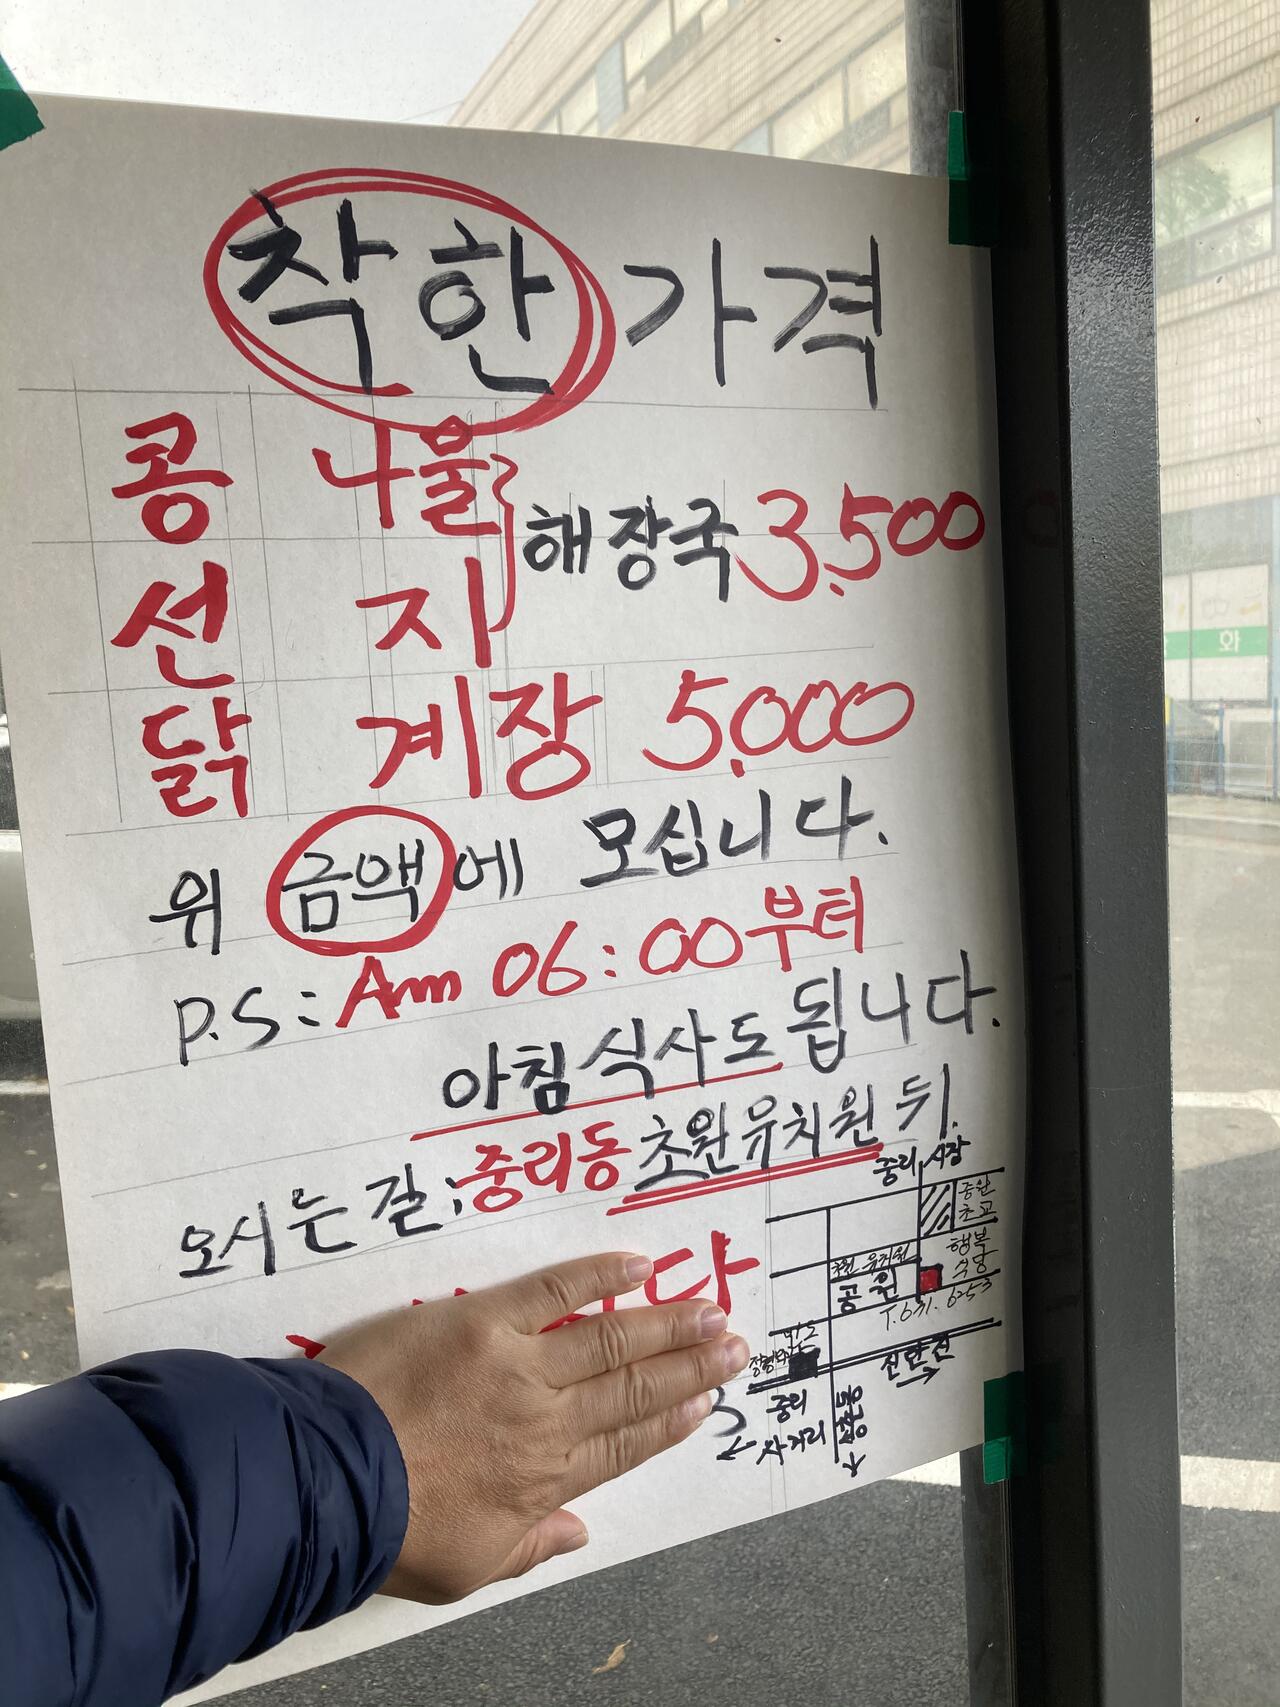 착한 가격
콩 나물
해장국 3.500
선 지
닭 계장 5.000
위 금액에 모십니다.
P.S: Am 06:00부터
아침식사도 됩니다.
오시는 길: 중리동 초원유치원 뒤.
당
중리 시장
중원
초교
초원 유치원
행복
식당
공원
T.631.6253
신탄진
중리
사거리
화